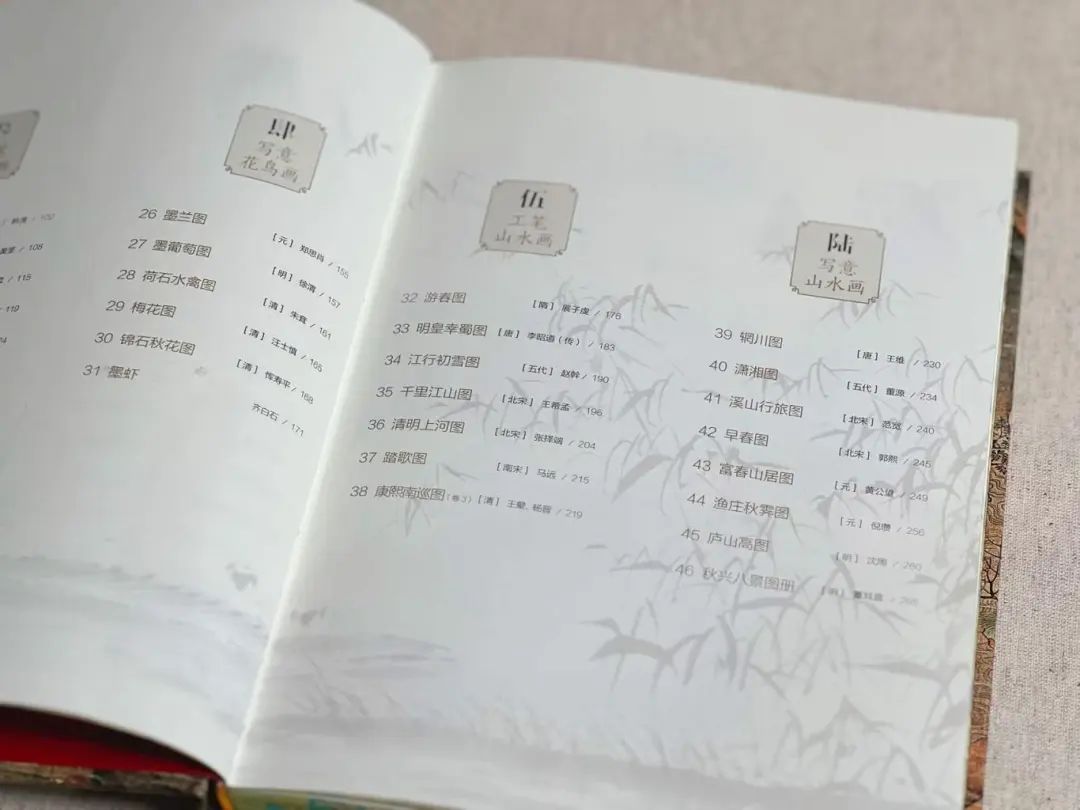 108
115
119
肆
写意
花鸟画
26 墨兰图 [元] 郑思肖 / 155
27 墨葡萄图 [明] 徐渭 / 157
28 荷石水禽图 [清] 朱耷 / 161
29 梅花图 [清] 汪士慎 / 165
30 锦石秋花图 [清] 恽寿平 / 168
31 墨虾 齐白石 / 171
伍
工笔
山水画
32 游春图 [隋] 展子虔 / 178
33 明皇幸蜀图 [唐] 李昭道(传) / 183
34 江行初雪图 [五代] 赵幹 / 190
35 千里江山图 [北宋] 王希孟 / 196
36 清明上河图 [北宋] 张择端 / 204
37 踏歌图 [南宋] 马远 / 215
38 康熙南巡图(卷3) [清] 王翚、杨晋 / 219
陆
写意
山水画
39 辋川图 [唐] 王维 / 230
40 潇湘图 [五代] 董源 / 234
41 溪山行旅图 [北宋] 范宽 / 240
42 早春图 [北宋] 郭熙 / 245
43 富春山居图 [元] 黄公望 / 249
44 渔庄秋霁图 [元] 倪瓒 / 256
45 庐山高图 [明] 沈周 / 260
46 秋兴八景图册 [明] 董其昌